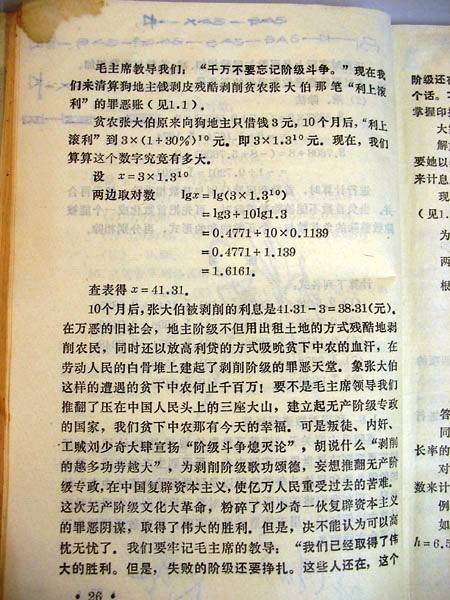 毛主席教导我们：“千万不要忘记阶级斗争。”现在我
们来清算狗地主钱剥皮残酷剥削贫农张大伯那笔“利上滚
利”的罪恶账（见1.1）。
贫农张大伯原来向狗地主只借钱3元，10个月后，“利上
滚利”到 3×(1+30%)¹⁰ 元。即 3×1.3¹⁰ 元。现在，我们
算算这个数字究竟有多大。
设 x=3×1.3¹⁰
两边取对数 lgx=lg(3×1.3¹⁰)
=lg3+10lg1.3
=0.4771+10×0.1139
=0.4771+1.139
=1.6161.
查表得 x=41.31.
10个月后，张大伯被剥削的利息是41.31-3=38.31(元)。
在万恶的旧社会，地主阶级不但用出租土地的方式残酷地剥
削农民，同时还以放高利贷的方式吸吮贫下中农的血汗，在
劳动人民的白骨堆上建起了剥削阶级的罪恶天堂。象张大伯
这样的遭遇的贫下中农何止千百万！要不是毛主席领导我们
推翻了压在中国人民头上的三座大山，建立起无产阶级专政
的国家，我们贫下中农那有今天的幸福。可是叛徒、内奸、
工贼刘少奇大肆宣扬“阶级斗争熄灭论”，胡说什么“剥削
的越多功劳越大”，为剥削阶级歌功颂德，妄想推翻无产阶
级专政，在中国复辟资本主义，使亿万人民重受过去的苦难。
这次无产阶级文化大革命，粉碎了刘少奇一伙复辟资本主义
的罪恶阴谋，取得了伟大的胜利。但是，决不能认为可以高
枕无忧了。我们要牢记毛主席的教导：“我们已经取得了伟
大的胜利。但是，失败的阶级还要挣扎。这些人还在，这个
· 26 ·
阶级还在
个话。
掌握印把
大家
解
要她以
来计息
现
(见1.
为
两
根
答
同
长率的
对
数来计
例
如
h=6.5